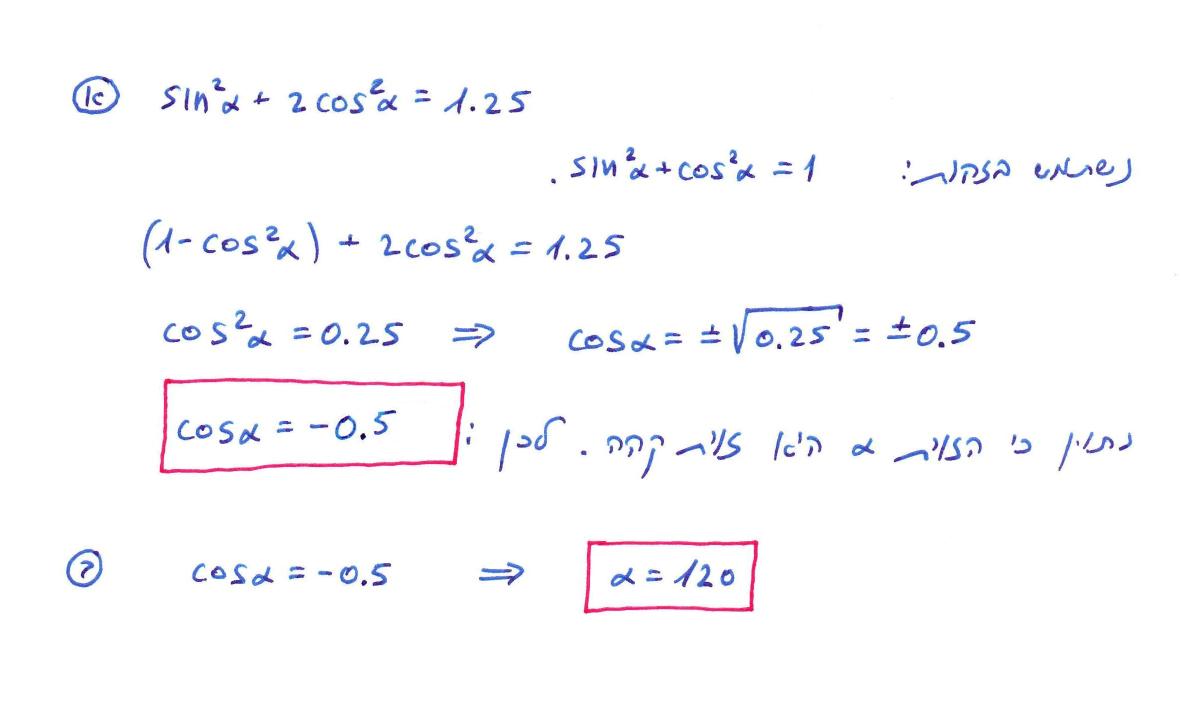 א sin²α + 2cos²α = 1.25
נשתמש בזהות: sin²α + cos²α = 1.
(1 - cos²α) + 2cos²α = 1.25
cos²α = 0.25 ⇒ cosα = ±√0.25 = ±0.5
נתון כי הזוית α היא זוית קהה. לכן: cosα = -0.5
ב cosα = -0.5 ⇒ α = 120